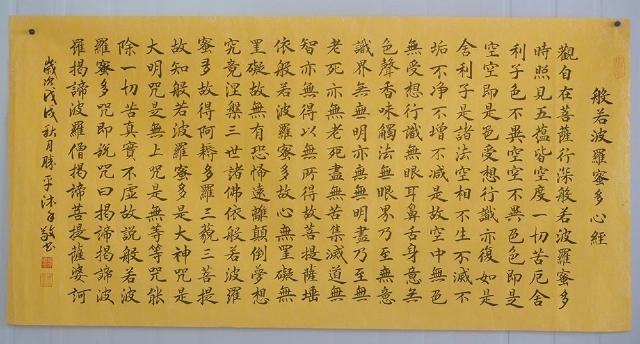 般若波羅蜜多心經
觀自在菩薩行深般若波羅蜜多
時照見五蘊皆空度一切苦厄舍
利子色不異空空不異色色即是
空空即是色受想行識亦復如是
舍利子是諸法空相不生不滅不
垢不净不增不減是故空中無色
無受想行識無眼耳鼻舌身意無
色聲香味觸法無眼界乃至無意
識界無無明亦無無明盡乃至無
老死亦無老死盡無苦集滅道無
智亦無得以無所得故菩提薩埵
依般若波羅蜜多故心無罣礙無
罣礙故無有恐怖遠離顛倒夢想
究竟涅槃三世諸佛依般若波羅
蜜多故得阿耨多羅三藐三菩提
故知般若波羅蜜多是大神咒是
大明咒是無上咒是無等等咒能
除一切苦真實不虛故說般若波
羅蜜多咒即說咒曰揭諦揭諦波
羅揭諦波羅僧揭諦菩提薩婆訶
歲次戊戌秋月勝平沐手敬书